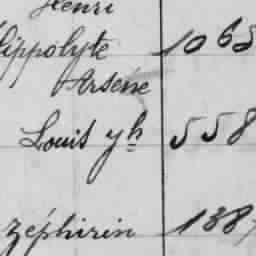 Henri
Hippolyte 1065
Arsène
Louis yh 558
Zéphirin 1387